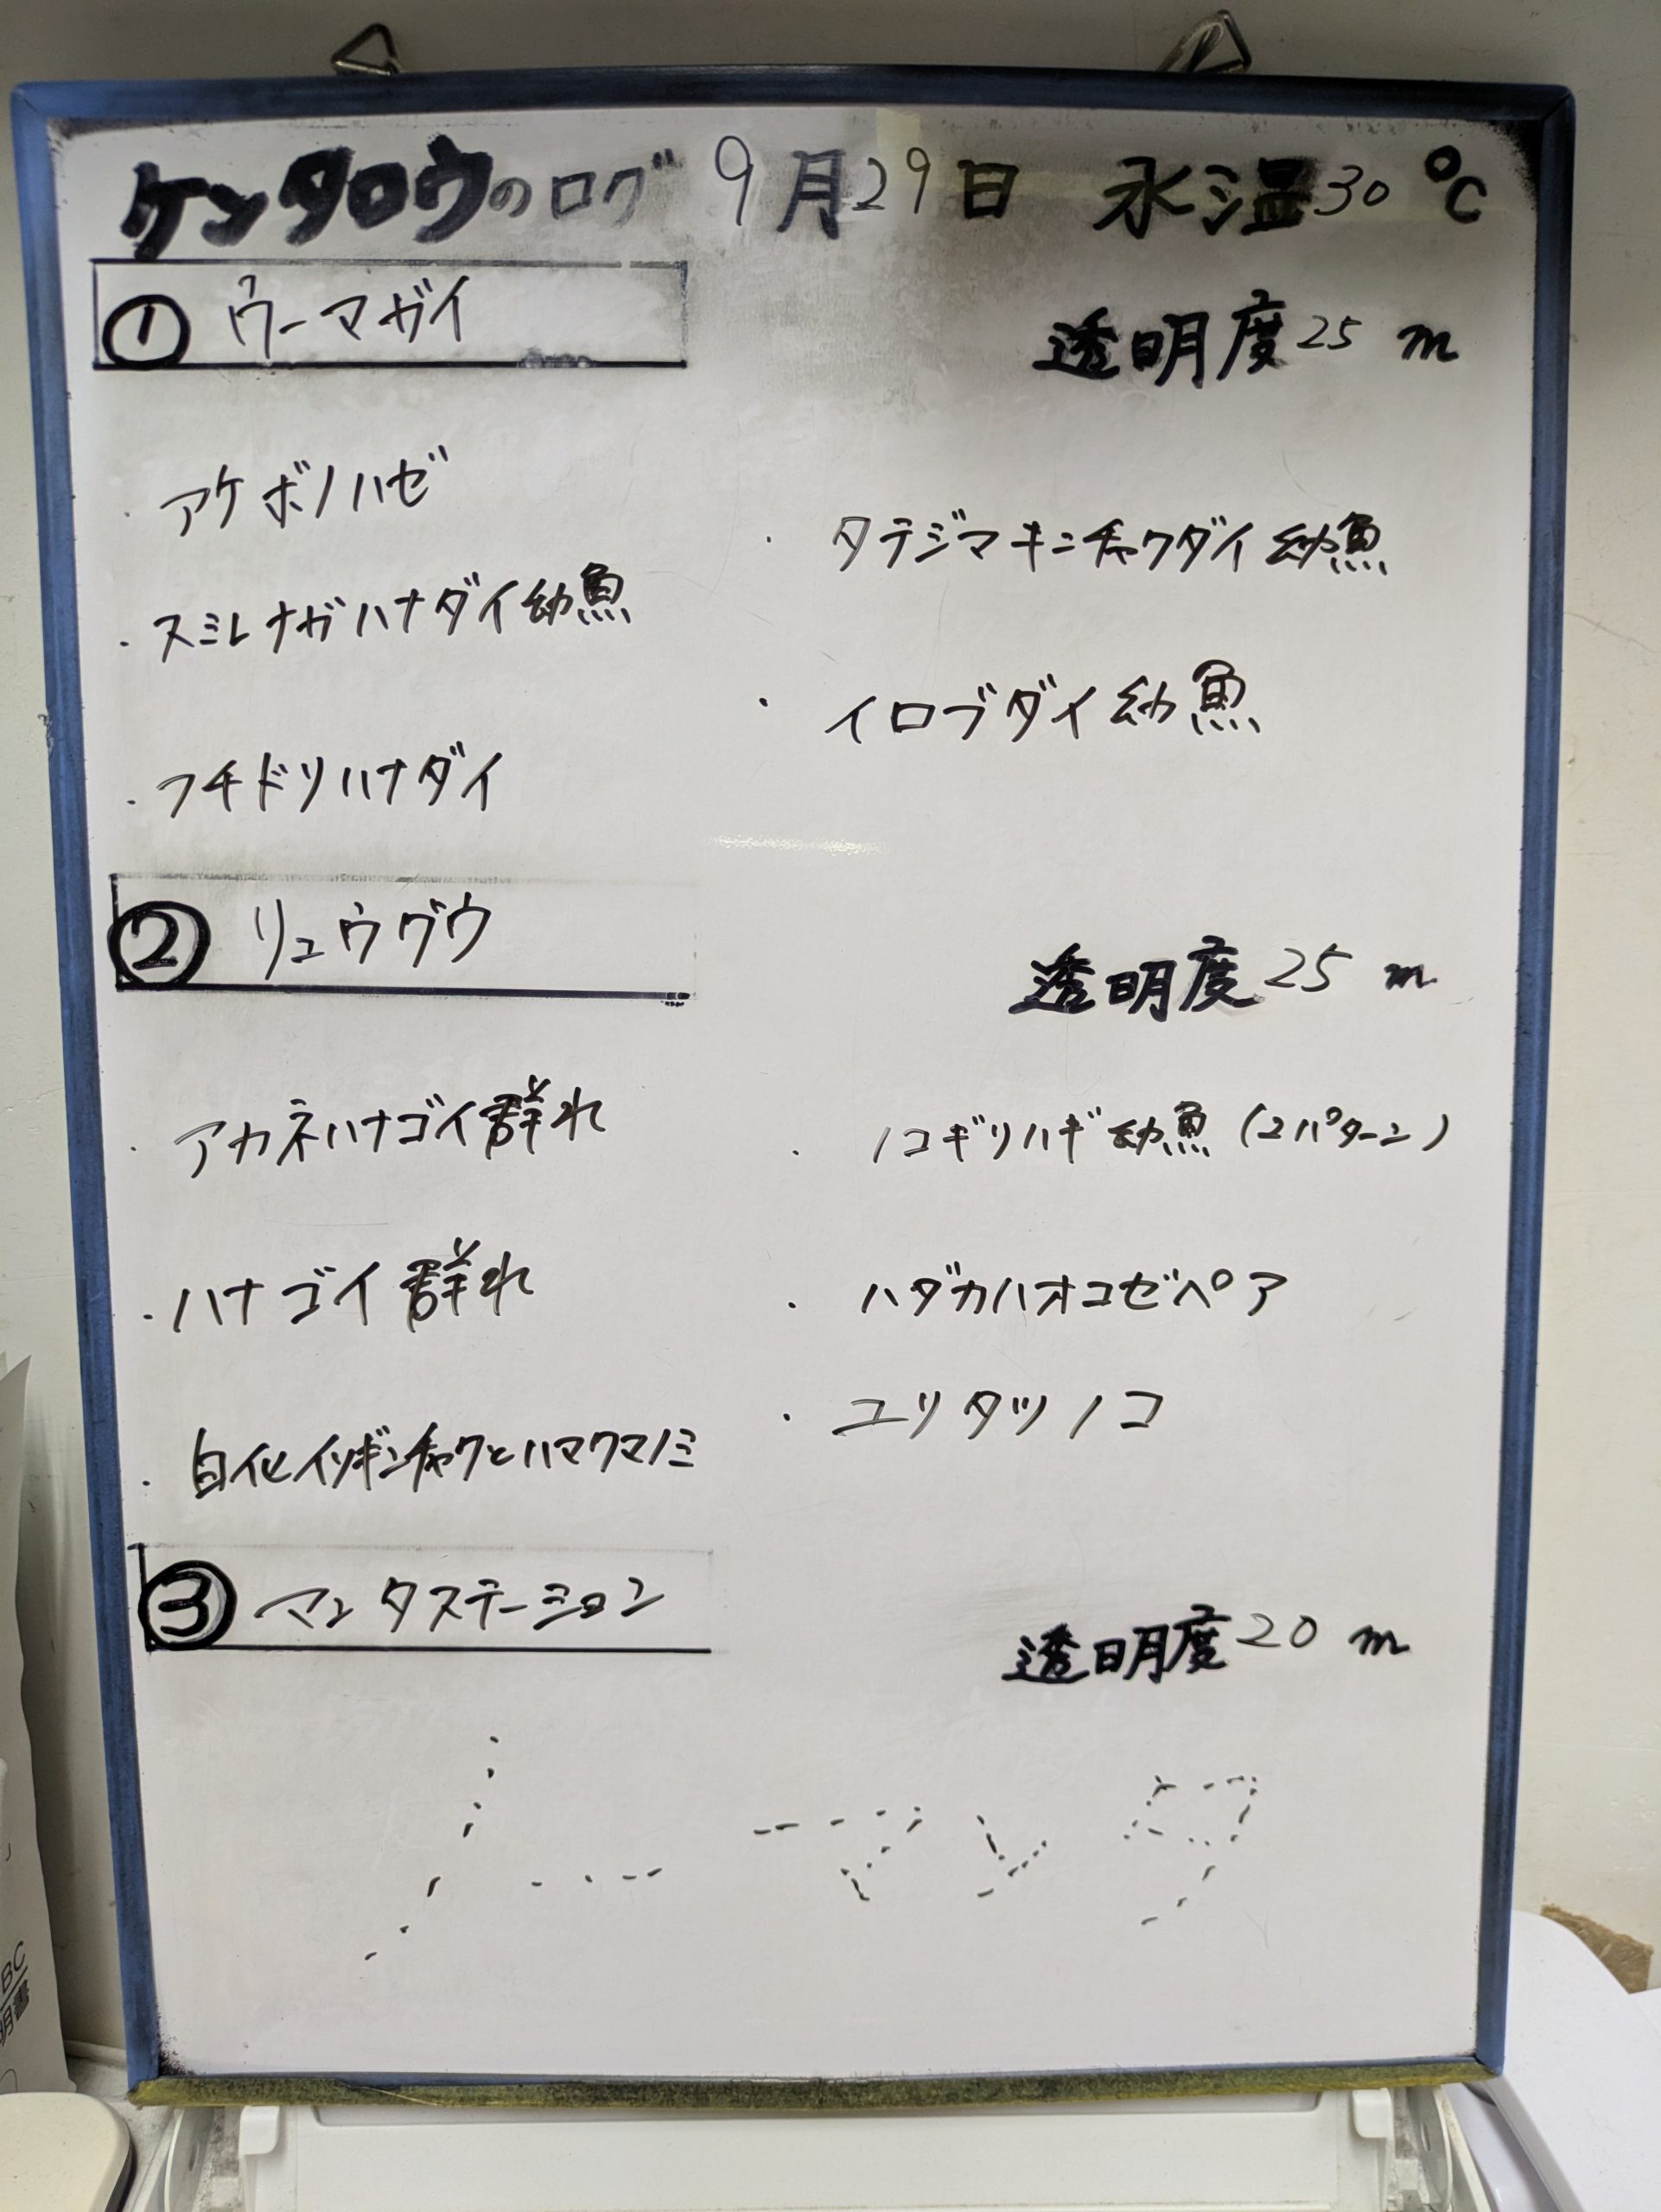 ケンタロウのログ 9月29日 水温30℃
① ウーマガイ
透明度25m
・アケボノハゼ
・スミレナガハナダイ幼魚
・フチドリハナダイ
・タテジマキンチャクダイ幼魚
・イロブダイ幼魚
② リュウグウ
透明度25m
・アカネハナゴイ群れ
・ハナゴイ群れ
・白化イソギンチャクとハマクマノミ
・ノコギリハギ幼魚(2パターン)
・ハダカハオコゼペア
・ユリタツノコ
③ マンタステーション
透明度20m
マンタ